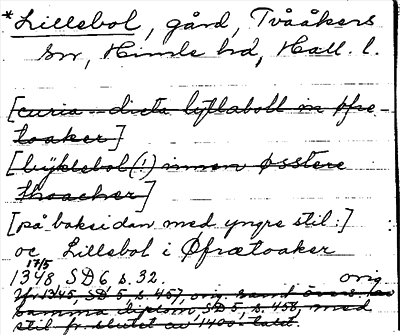 *Lillebol, gård, Tvååkers
sn, Himle hd, Hall. l.
[curia dicta lytlaboll in øfre-
toaker]
[lyklebol(!) innen østere
thoacher]
[på baksidan med yngre stil:]
oc Lillebol i Øfrætoaker
17/5
1348 SD 6 s. 32. orig
1345, SD 5 s. 457, orig samt
samma diplom SD 5 s. 458, med
stil fr. slutet av 1400-talet.